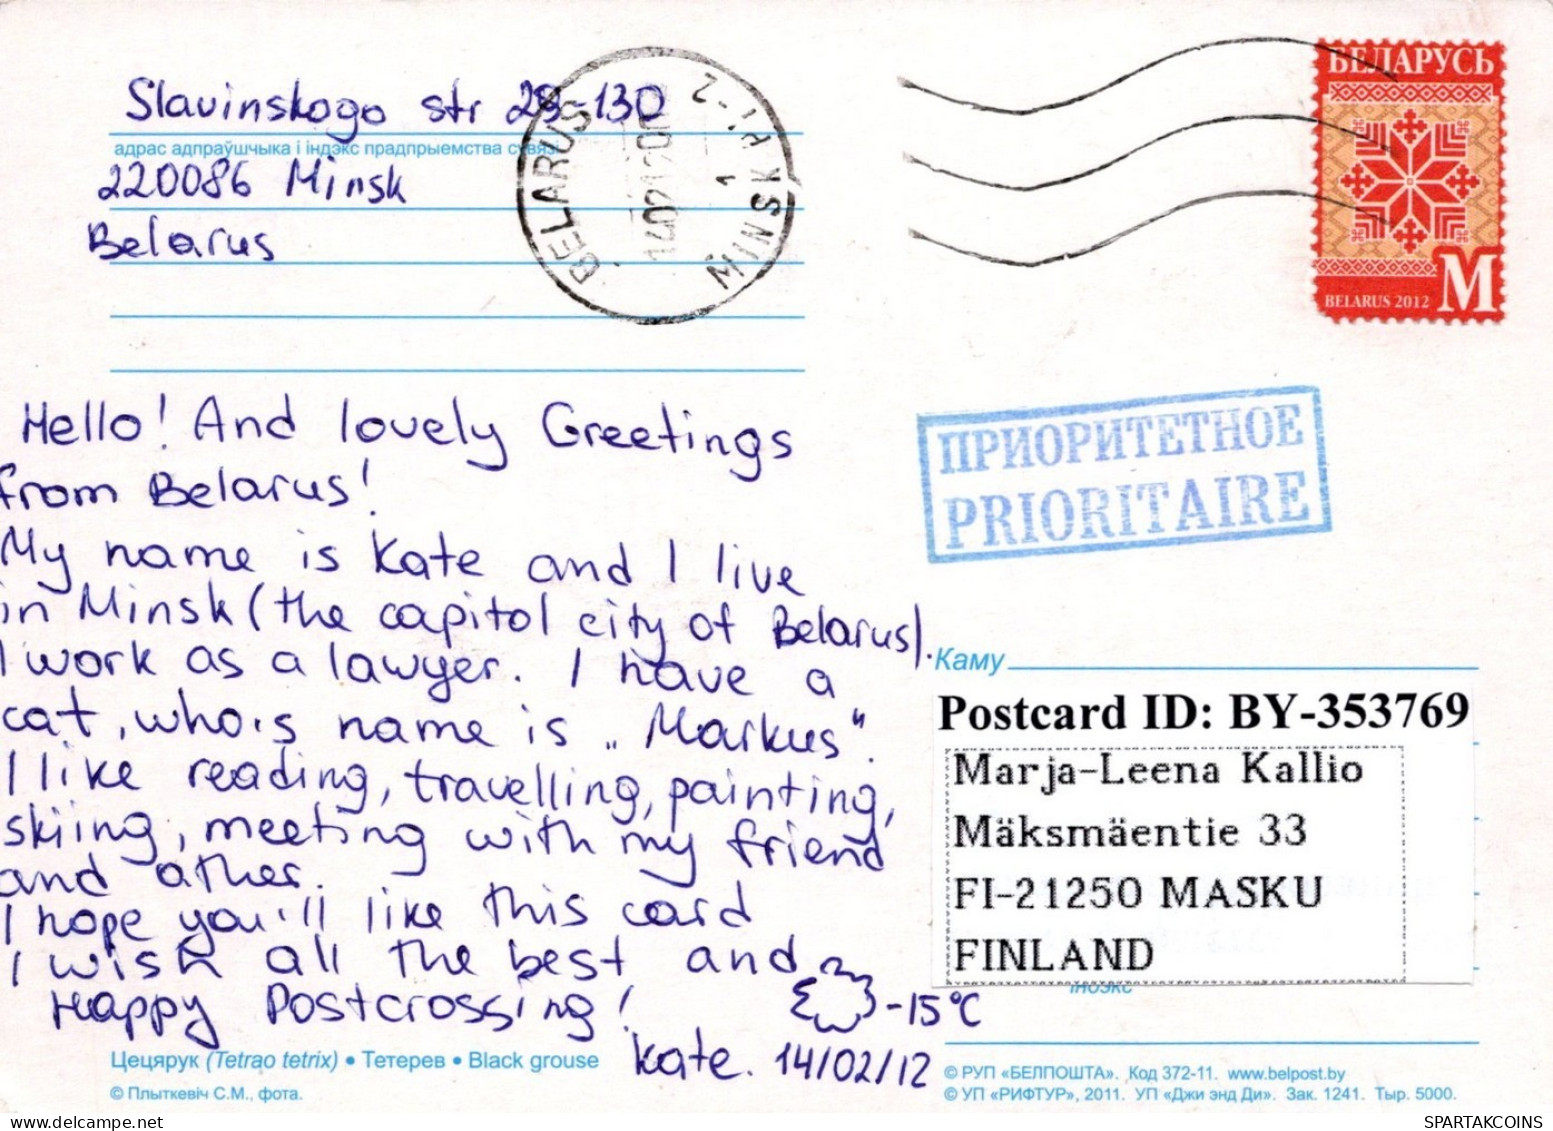 Slavinskogo str 28-130
адрас адпраўшчыка і індэкс прадпрыемства сувязі
220086 Minsk
Belarus
BELARUS
MINSK PI-2
1
БЕЛАРУСЬ
BELARUS 2012 M
ПРИОРИТЕТНОЕ
PRIORITAIRE
Hello! And lovely Greetings
from Belarus!
My name is Kate and I live
in Minsk (the capitol city of Belarus).
I work as a lawyer. I have a
cat, who's name is „Markus".
I like reading, travelling, painting,
skiing, meeting with my friend
and ather.
I hope you'll like this card
I wish all the best and
Happy Postcrossing!
-15°C
Kate. 14/02/12
Каму
Postcard ID: BY-353769
Marja-Leena Kallio
Mäksmäentie 33
FI-21250 MASKU
FINLAND
Індэкс
Цецярук (Tetrao tetrix) • Тетерев • Black grouse
© Плыткевіч С.М., фота.
© РУП «БЕЛПОШТА». Код 372-11. www.belpost.by
© УП «РИФТУР», 2011. УП «Джи энд Ди». Зак. 1241. Тыр. 5000.
SPARTAKCOINS